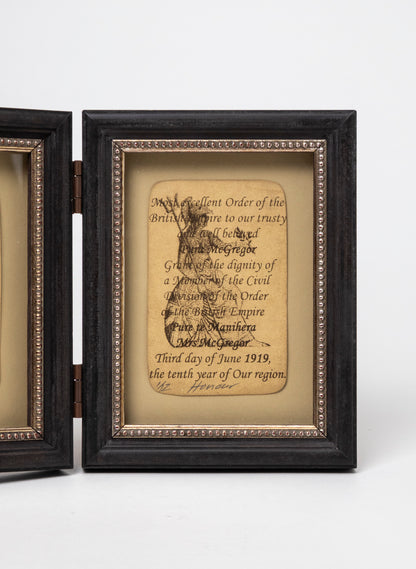 Most excellent Order of the
British Empire to our trusty
and well beloved
Pura McGregor
Grant of the dignity of
a Member of the Civil
Division of the Order
of the British Empire
Pure te Manihera
Mrs McGregor
Third day of June 1919,
the tenth year of Our region.
Honour